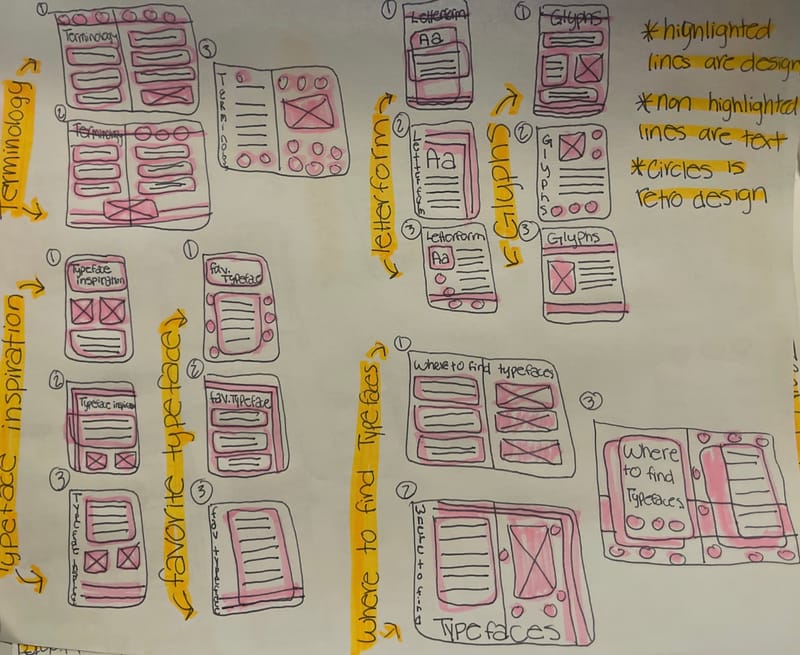 Terminology
①
Terminology
②
Terminology
③
Terminology
letterform
①
Letterform
Aa
②
Letterform
Aa
③
Letterform
Aa
Glyphs
①
Glyphs
②
Glyphs
③
Glyphs
*highlighted
lines are design
*non highlighted
lines are text
*Circles is
retro design
Typeface inspiration
①
Typeface
inspiration
②
Typeface
③
favorite typeface
①
fav.
Typeface
②
fav. Typeface
③
fav typeface
Where to find Typefaces
①
Where to find typefaces
②
Where to find
Typefaces
③
Where
to find
Typefaces